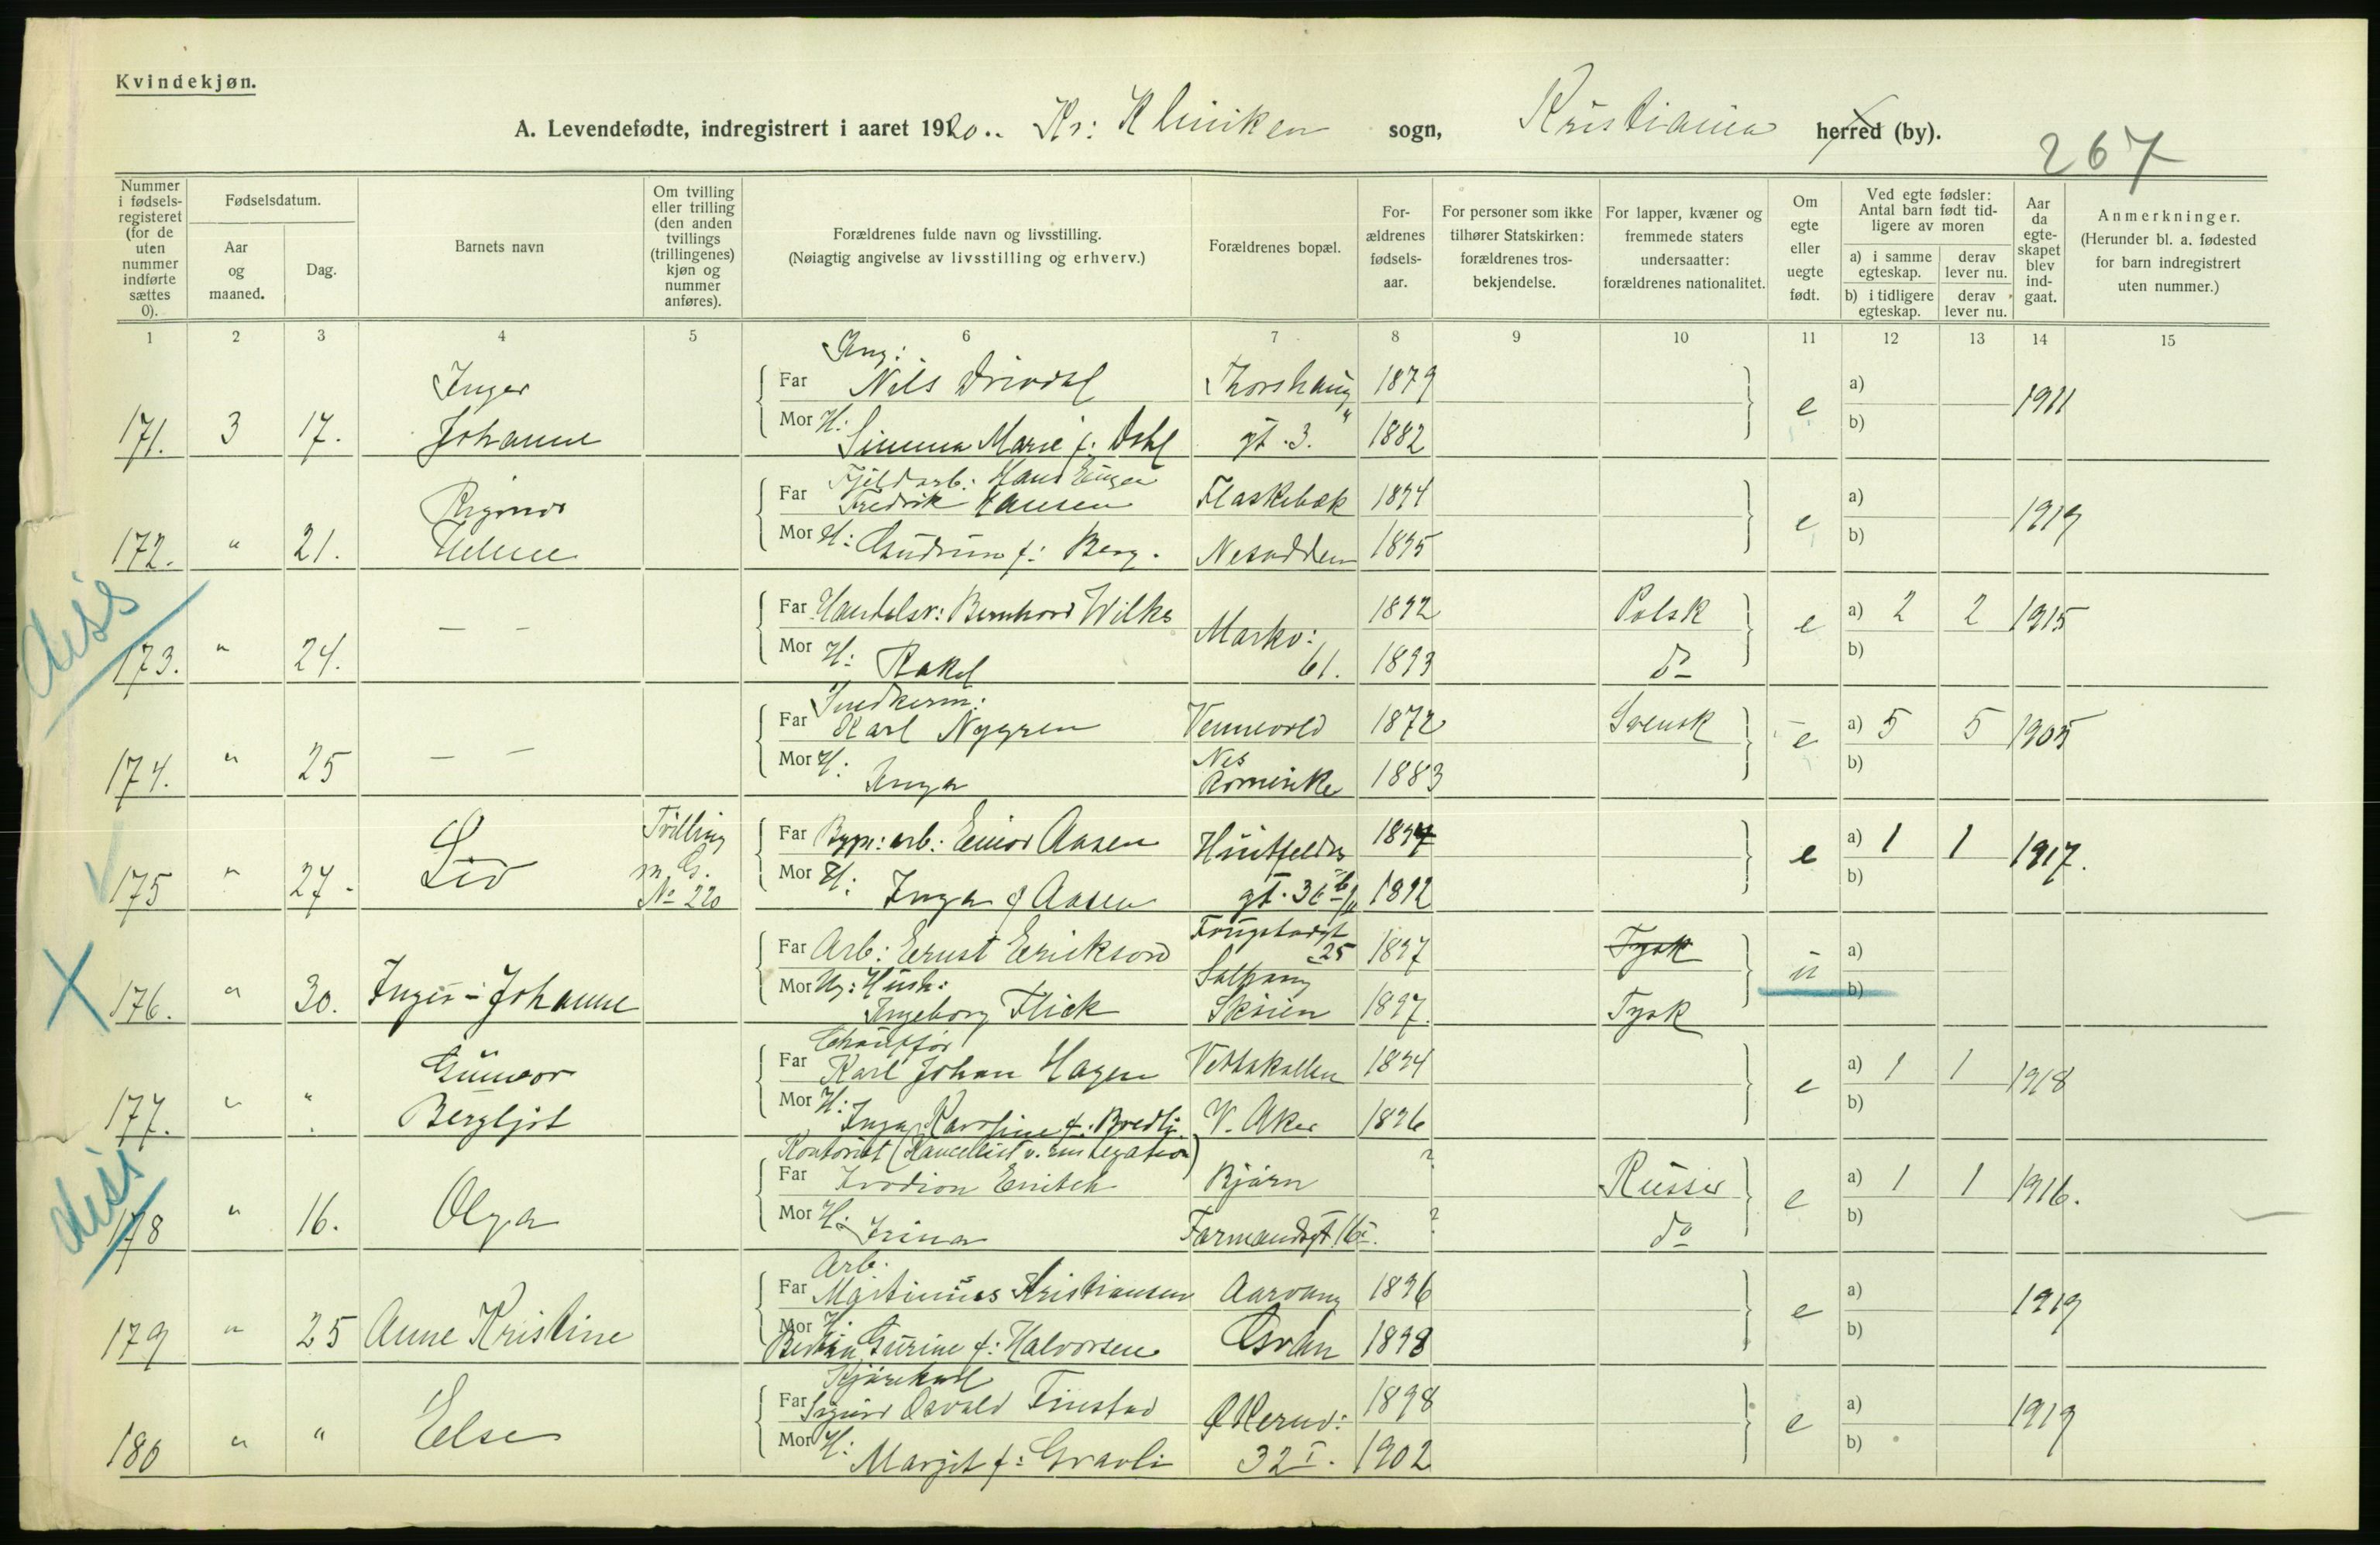 Kvindekjøn.
A. Levendefødte, indregistrert i aaret 1920.. Kr: Kliniken sogn, Kristiania herred (by).
267
Nummer i fødselsregisteret (for de uten nummer indførte sættes 0).
Fødselsdatum.
Aar og maaned.
Dag.
Barnets navn
Om tvilling eller trilling (den anden tvillings (trillingenes) kjøn og nummer anføres).
Forældrenes fulde navn og livsstilling.
(Nøiagtig angivelse av livsstilling og erhverv.)
Forældrenes bopæl.
Forældrenes fødselsaar.
For personer som ikke tilhører Statskirken: forældrenes trosbekjendelse.
For lapper, kvæner og fremmede staters undersaatter: forældrenes nationalitet.
Om egte eller uegte født.
Ved egte fødsler: Antal barn født tidligere av moren
a) i samme egteskap. derav lever nu.
b) i tidligere egteskap. derav lever nu.
Aar da egteskapet blev indgaat.
Anmerkninger.
(Herunder bl. a. fødested for barn indregistrert uten nummer.)
1 2 3 4 5 6 7 8 9 10 11 12 13 14 15
Ing:
Inger Far Nils Drivdal Thorshaug 1879 a)
171. 3 17. Johanne Mor H: Marie f. Dahl gt. 3. 1882 e b) 1911
Fjeldarb: Hans Einar
Rigmor Far Fredrik Hansen Flaskebæk 1894 a)
172. " 21. Helene Mor H: Gudrun f: Berg. Nesodden 1895 e b) 1919
diss
Far Handelsr: Bernhard Wilks Markv: 1892 Polsk a) 2 2 1915
173. " 24. — — Mor H: Rakel 61. 1893 do e b)
Snedkerm:
Far Karl Nygren Vennevold 1872 Svensk a) 5 5 1905
174. " 25 — — Mor H: Inga Nes Romerike 1883 e b)
Tvilling Far arb: Einar Aasen Huitfeldts 1894 a) 1 1 1917.
175 " 27. Liv m. G. No 220 Mor H: Inga f Aasen gt. 1892 e b)
Far Arb: Ernst Erikson 25 1897 Tysk a)
176. " 30. Inger-Johanne Mor Ug: Hush: Ingeborg Flick Skøien 1897. Tysk u b)
Chauffør
Gunvor Far Karl Johan Hagen Vettakollen 1894 a) 1 1 1918
177. " " Bergljot Mor H: Inga Karoline f. Bredli. V. Aker 1896 e b)
diss
Kontorist (Kancellist v. russ legation)
Far Irodion Bjørn ? Russer a) 1 1 1916.
178 " 16. Olga Mor H: Irina Farmandsgt 16 I. ? do e b)
Arb.
Far Martinius Kristiansen Aarvang 1896 a)
179 " 25 Anne Kristine Mor H: Gurine f: Halvorsen 1898 e b) 1919
Kjørekarl
Far Sigurd Osvald Finstad Økernv: 1898 a)
180 " " Else Mor H: Margit f: Gravli 32 I. 1902 e b) 1919